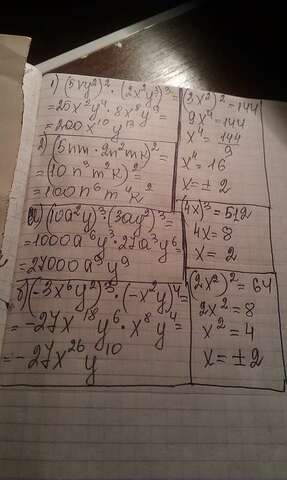 1) (5xy²)² · (2x²y³)³ =
= 25x²y⁴ · 8x⁸y⁹ =
= 200x¹⁰y¹³
2) (5nm · 2n²mk)² =
= (10n³m²k)² =
= 100n⁶m⁴k²
а) (10a²y)³ · (3ay²)³ =
= 1000a⁶y³ · 27a³y⁶ =
= 27000a⁹y⁹
б) (-3x⁶y²)³ · (-x²y)⁴ =
= -27x¹⁸y⁶ · x⁸y⁴ =
= -27x²⁶y¹⁰
(3x²)² = 144
9x⁴ = 144
x⁴ = 144/9
x⁴ = 16
x = ± 2
(4x)³ = 512
4x = 8
x = 2
(2x²)² = 64
2x² = 8
x² = 4
x = ± 2